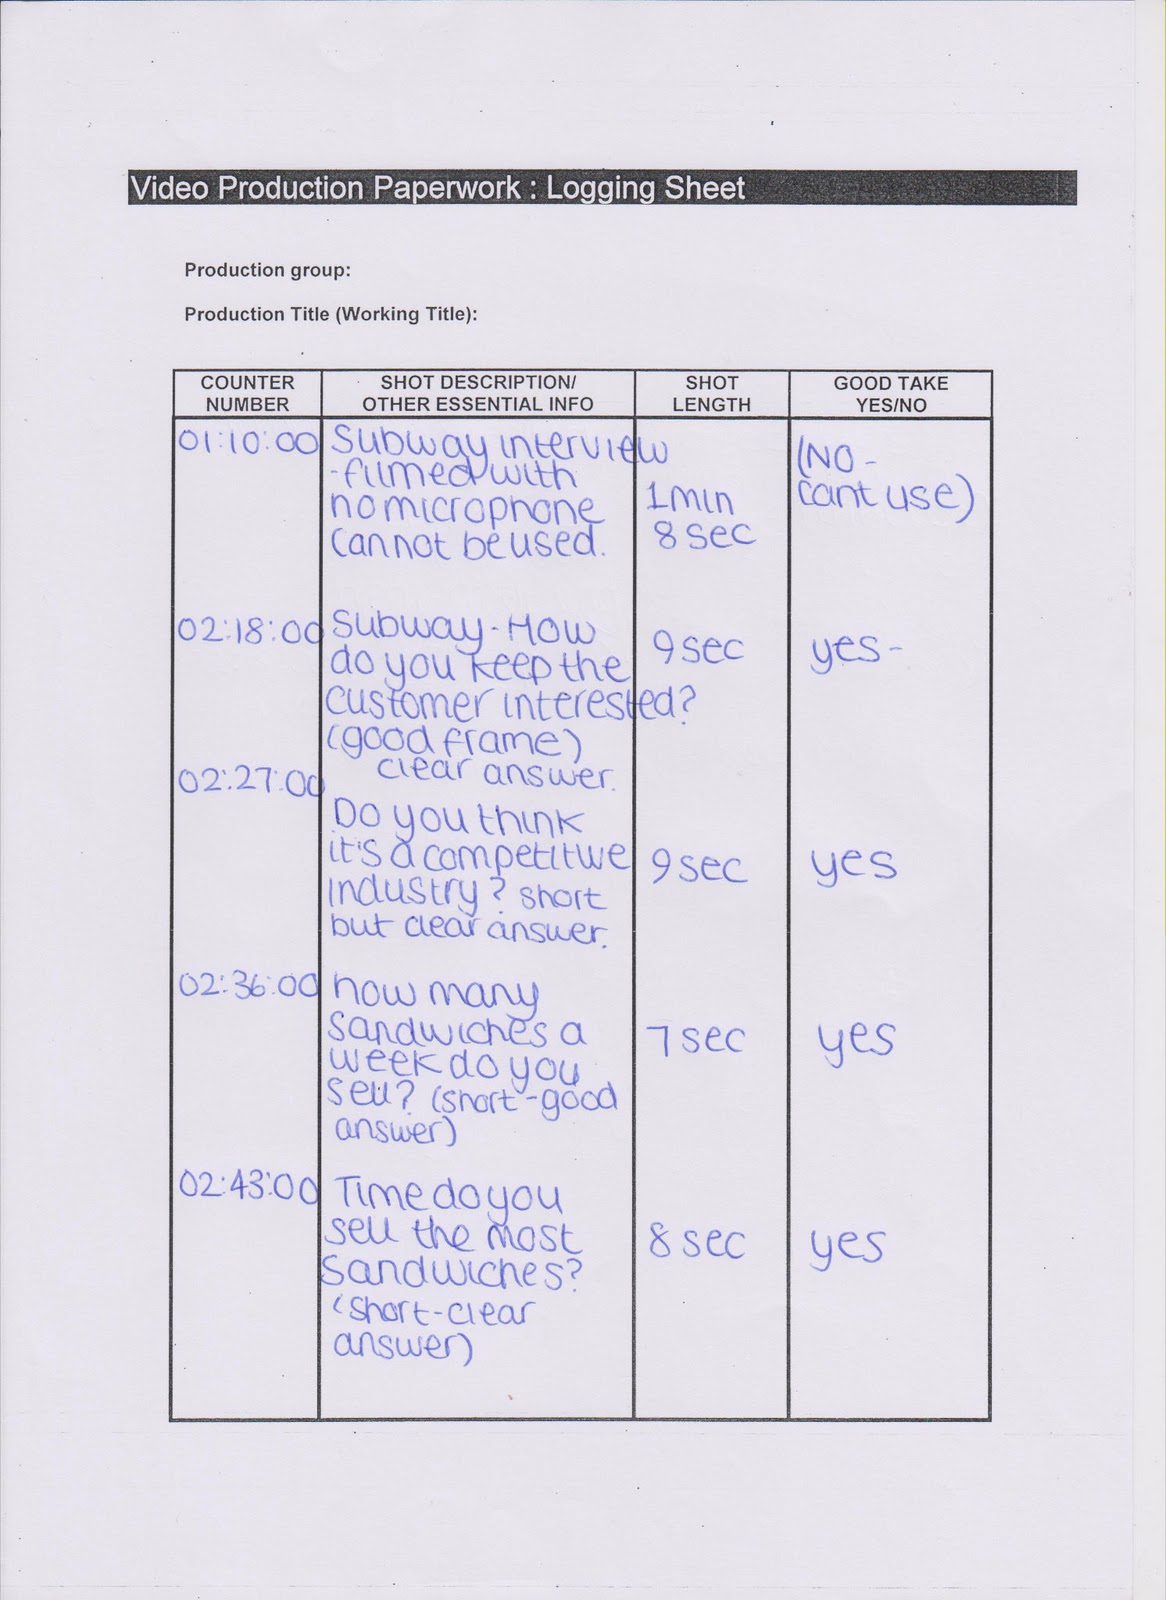 Video Production Paperwork : Logging Sheet
Production group:
Production Title (Working Title):
COUNTER NUMBER
SHOT DESCRIPTION/ OTHER ESSENTIAL INFO
SHOT LENGTH
GOOD TAKE YES/NO
01:10:00
Subway interview
-filmed with
no microphone
cannot be used.
1min
8 sec
(NO -
cant use)
02:18:00
Subway - How
do you keep the
customer interested?
(good frame)
clear answer.
9 sec
yes -
02:27:00
Do you think
it's a competitwe
industry? short
but clear answer.
9 sec
yes
02:36:00
how many
sandwiches a
week do you
sell? (short - good
answer)
7 sec
yes
02:43:00
Time do you
sell the most
sandwiches?
(short - clear
answer)
8 sec
yes